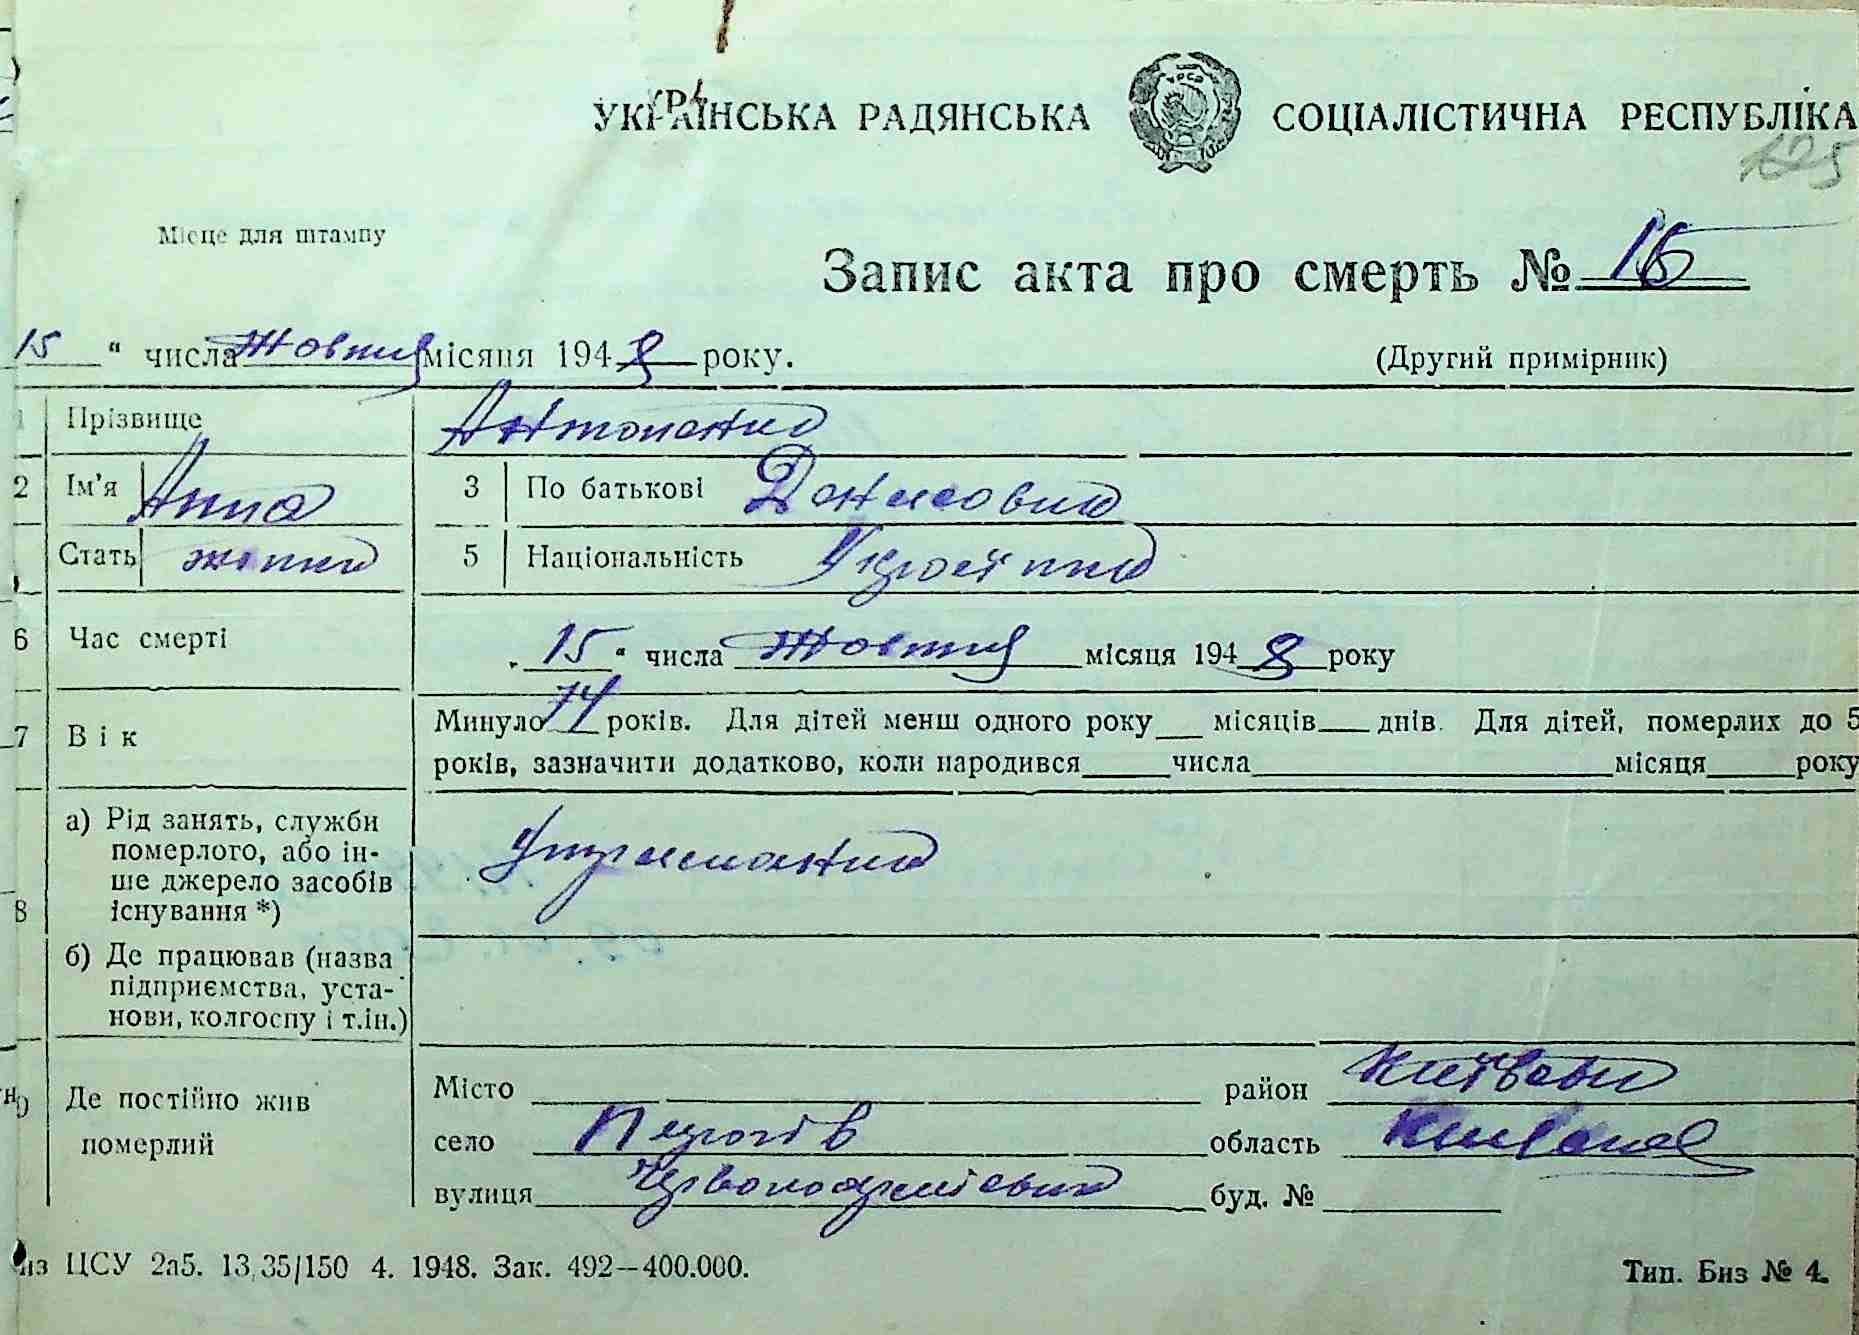 УКРАЇНСЬКА РАДЯНСЬКА СОЦІАЛІСТИЧНА РЕСПУБЛІКА
125
Місце для штампу
Запис акта про смерть № 16
15 " числа Жовтня місяця 1948 року.
(Другий примірник)
1 Прізвище Антоненко
2 Ім'я Анна 3 По батькові Денисовна
Стать жінка 5 Національність Українка
6 Час смерті „ 15 " числа Жовтня місяця 1948 року
7 Вік Минуло 74 років. Для дітей менш одного року місяців днів. Для дітей, померлих до 5
років, зазначити додатково, коли народився числа місяця року
8 а) Рід занять, служби
померлого, або ін-
ше джерело засобів
існування *)
Утриманка
б) Де працював (назва
підприємства, уста-
нови, колгоспу і т.ін.)
Де постійно жив
померлий
Місто район Київський
село Пирогів область Київська
вулиця Червоноармієвська буд. №
из ЦСУ 2а5. 13,35/150 4. 1948. Зак. 492—400.000.
Тип. Биз № 4.